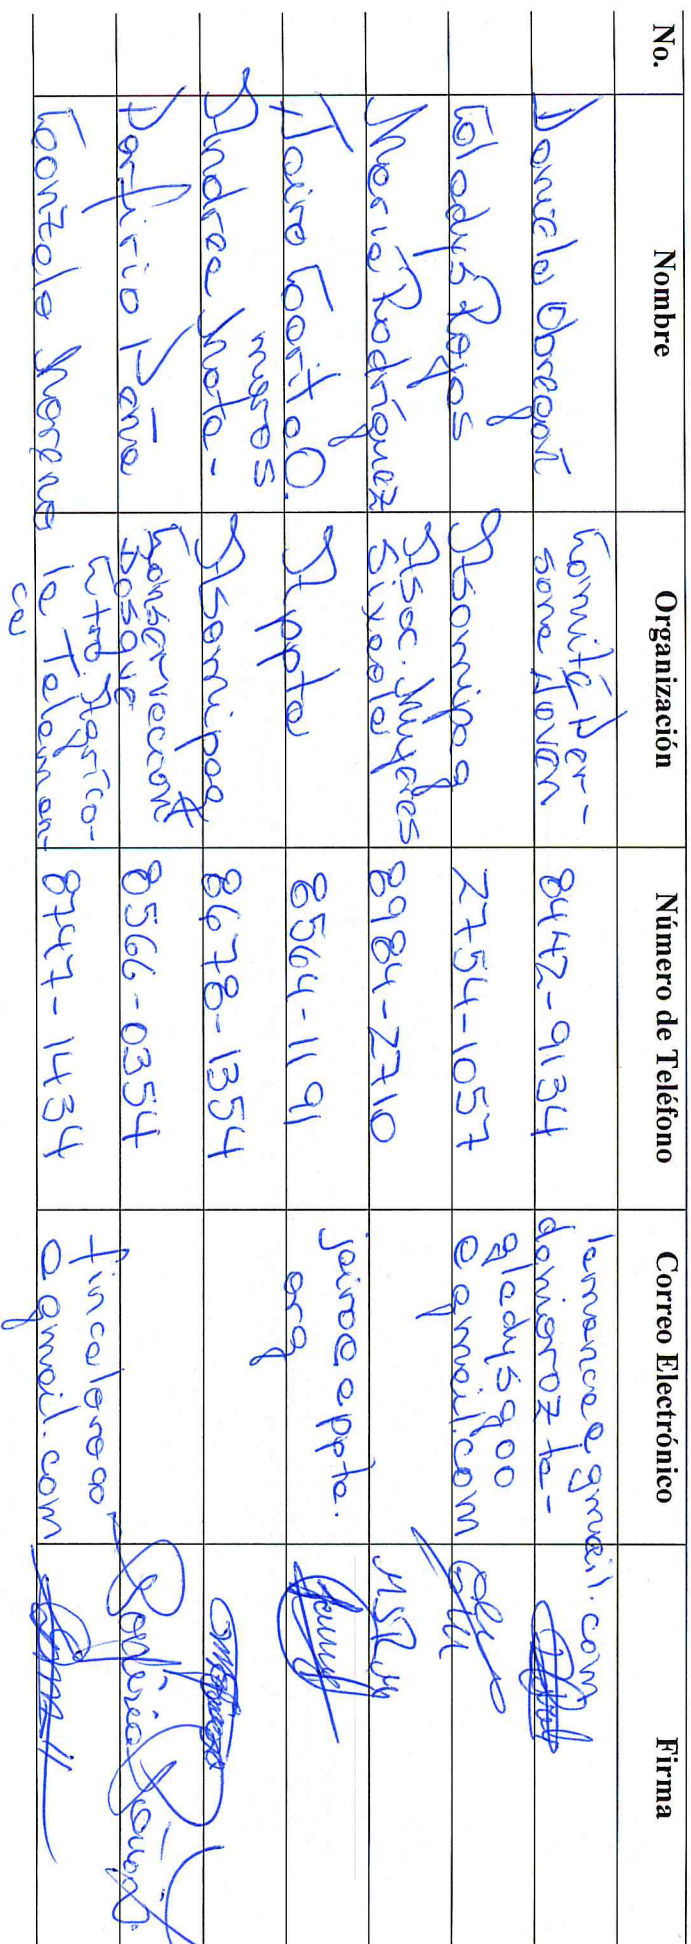 No. Nombre Organización Número de Teléfono Correo Electrónico Firma
Daniela Obregón Comité Per-
sona Joven 8442-9134 damiaroz ta-
lamanca@gmail.com
Gladys Rojas Asomipag 2754-1057 gladys900
@gmail.com
María Rodríguez Asoc. Mujeres
Sixaola 8984-2710
Jairo García O. Appta 8564-1191 jairo@appta.
org
Andrea Mata-
moros Asomipag 8678-1354
Porfirio Peña Conservación
Bosque 8566-0354
Gonzalo Moreno Ctro. Agríco-
la Talaman-
ca 8747-1434 fincaloroco
@gmail.com